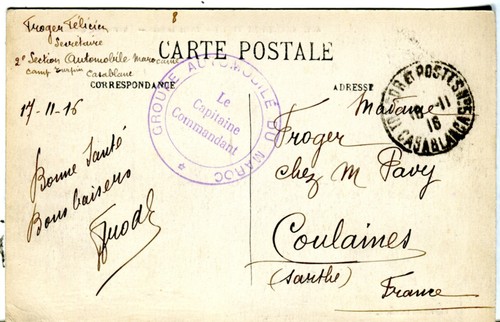 8
Froger Félicien
Secrétaire
2e Section Automobile Marocaine
Camp Casablanca
CARTE POSTALE
CORRESPONDANCE
ADRESSE
17-11-16
Bonne Santé
Bons baisers
GROUPE AUTOMOBILE DU MAROC
Le
Capitaine
Commandant
TRESOR ET POSTES
18-11
16
CASABLANCA
Madame
Froger
chez M Pavy
Coulaines
(Sarthe)
France